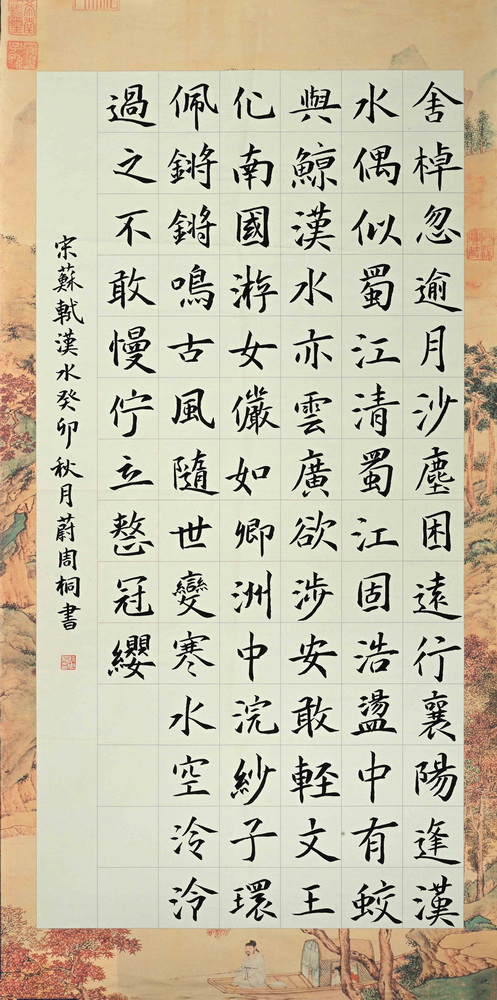 舍棹忽逾月沙塵困遠行襄陽逢漢
水偶似蜀江清蜀江固浩盪中有蛟
與鯨漢水亦雲廣欲涉安敢輕文王
化南國游女儼如卿洲中浣紗子環
佩鏘鏘鳴古風隨世變寒水空泠泠
過之不敢慢佇立整冠纓
宋蘇軾漢水癸卯秋月蔚周桐書